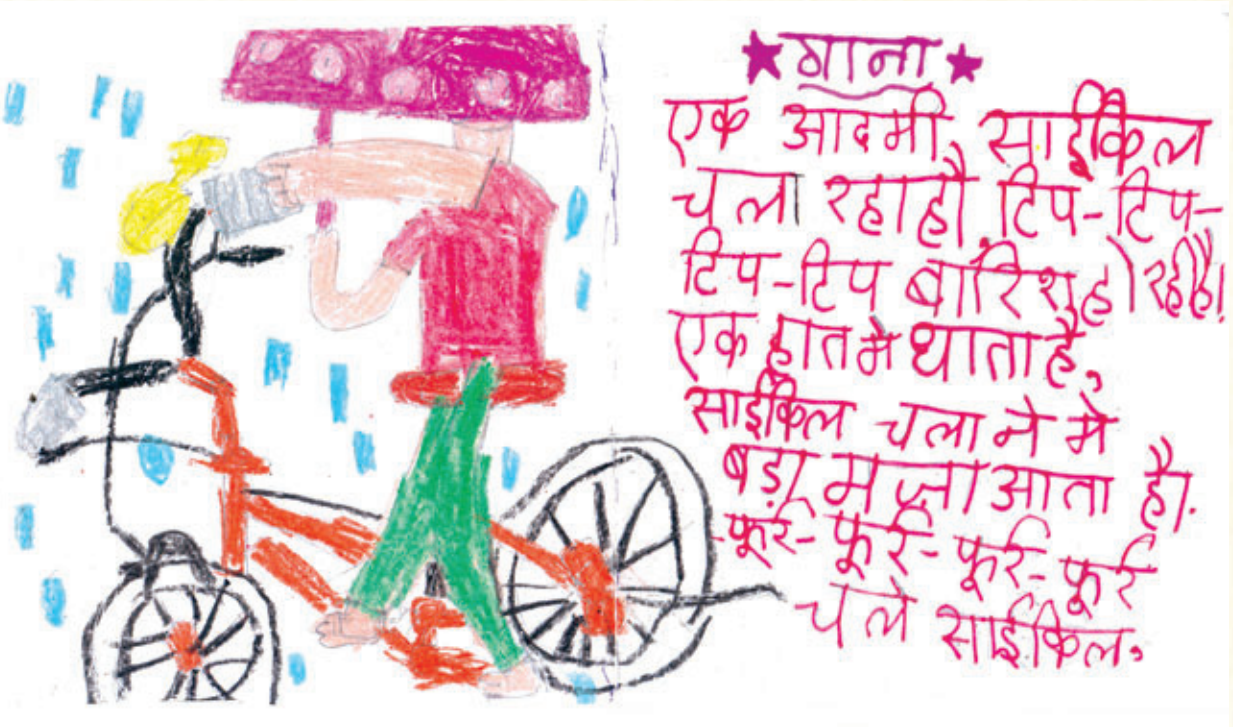 ★ गाना ★
एक आदमी साईकिल
चला रहा है टिप-टिप-
टिप-टिप बारिश हो रही है।
एक हात मे छाता है,
साईकिल चलाने मे
बड़ा मज़ा आता है।
फूर्र-फूर्र-फूर्र-फूर्र
चले साईकिल.